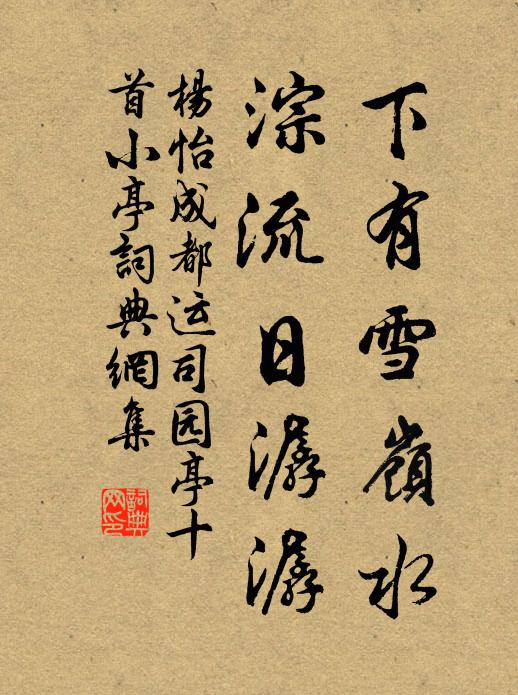 下有雪嶺水
淙流日潺潺
楊怡成都运司园亭十
首小亭詞典網集